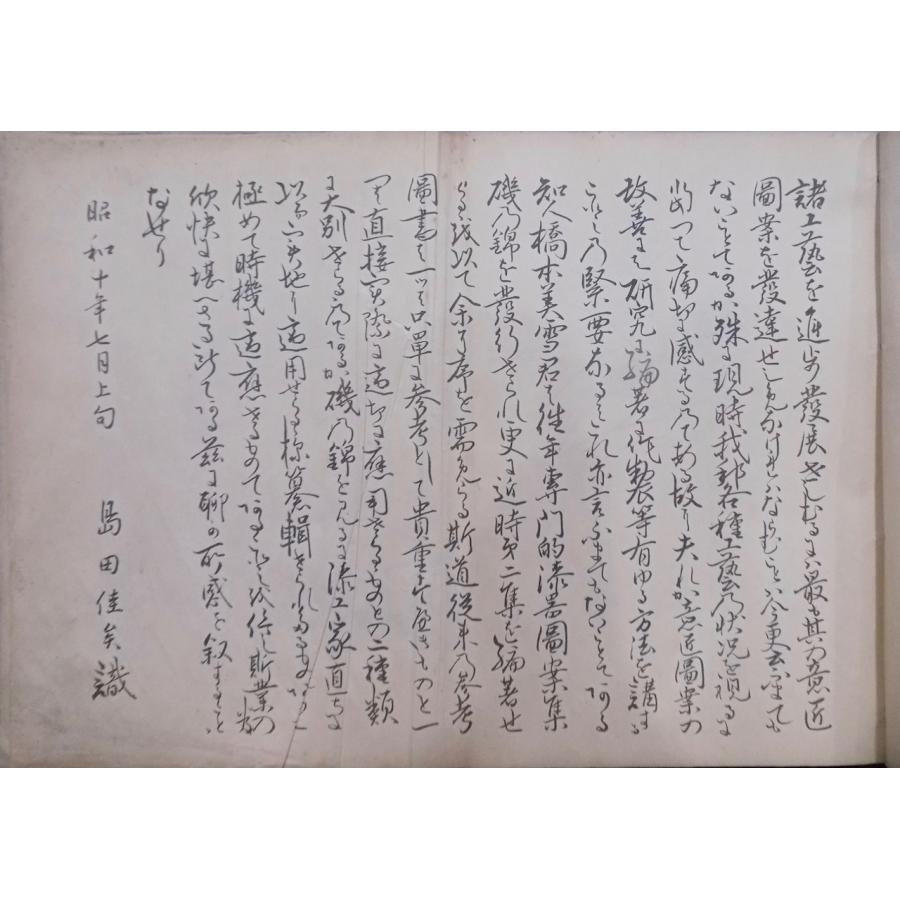 諸工藝を進歩發展せしむるには最も其の意匠
圖案を發達せしめなければならむことは今更云ふまでも
ないことであるが殊に現時我邦各種工藝の状况を視るに
つて痛切に感ずるのである故に夫れが意匠圖案の
改善には研究に編著に作製等有ゆる方法を講する
ことの緊要なることれ亦言ふまでもないことである
知人橋本美雪君は往年專門的漆器圖案集
磯の錦を發行せられ更に近時第二集を編著せ
らる以て余に序を需めらる斯道従来の參考
圖書は一ツは只單に參考として貴重すべきものと一
は直接実際に適切に應用せらるものとの二種類
に大別せらるのであるが磯の錦を見るに漆工家直ちに
以て実地に適用せらる様纂輯せられたるもの
極めて時機に適應せるものである信し斯業の為
欣快に堪へざる所である茲に聊か所感を叙すこと
なせり
昭和十年七月上旬
島田佳矣識